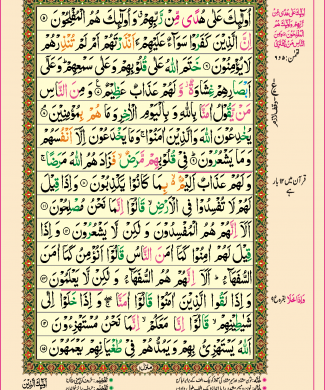 اُولٰٓئِكَ عَلٰى هُدًى مِّنْ رَّبِّهِمْ ۗ وَاُولٰٓئِكَ هُمُ الْمُفْلِحُوْنَ ۝
اِنَّ الَّذِيْنَ كَفَرُوْا سَوَآءٌ عَلَيْهِمْ ءَاَنْذَرْتَهُمْ اَمْ لَمْ تُنْذِرْهُمْ
لَا يُؤْمِنُوْنَ ۝ خَتَمَ اللّٰهُ عَلٰى قُلُوْبِهِمْ وَعَلٰى سَمْعِهِمْ ؕ وَعَلٰٓى
اَبْصَارِهِمْ غِشَاوَةٌ ۫ وَّلَهُمْ عَذَابٌ عَظِيْمٌ ۝ وَمِنَ النَّاسِ
مَنْ يَّقُوْلُ اٰمَنَّا بِاللّٰهِ وَبِالْيَوْمِ الْاٰخِرِ وَمَا هُمْ بِمُؤْمِنِيْنَ ۝
يُخٰدِعُوْنَ اللّٰهَ وَالَّذِيْنَ اٰمَنُوْا ۚ وَمَا يَخْدَعُوْنَ اِلَّآ اَنْفُسَهُمْ
وَمَا يَشْعُرُوْنَ ۝ فِيْ قُلُوْبِهِمْ مَّرَضٌ ۙ فَزَادَهُمُ اللّٰهُ مَرَضًا ۚ
وَلَهُمْ عَذَابٌ اَلِيْمٌۢ ۙ بِمَا كَانُوْا يَكْذِبُوْنَ ۝ وَاِذَا قِيْلَ
لَهُمْ لَا تُفْسِدُوْا فِي الْاَرْضِ ۙ قَالُوْٓا اِنَّمَا نَحْنُ مُصْلِحُوْنَ ۝
اَلَآ اِنَّهُمْ هُمُ الْمُفْسِدُوْنَ وَلٰكِنْ لَّا يَشْعُرُوْنَ ۝ وَاِذَا
قِيْلَ لَهُمْ اٰمِنُوْا كَمَآ اٰمَنَ النَّاسُ قَالُوْٓا اَنُؤْمِنُ كَمَآ اٰمَنَ
السُّفَهَآءُ ؕ اَلَآ اِنَّهُمْ هُمُ السُّفَهَآءُ وَلٰكِنْ لَّا يَعْلَمُوْنَ ۝
وَاِذَا لَقُوا الَّذِيْنَ اٰمَنُوْا قَالُوْٓا اٰمَنَّا ۖ وَاِذَا خَلَوْا اِلٰى
شَيٰطِيْنِهِمْ ۙ قَالُوْٓا اِنَّا مَعَكُمْ ۙ اِنَّمَا نَحْنُ مُسْتَهْزِءُوْنَ ۝
اَللّٰهُ يَسْتَهْزِئُ بِهِمْ وَيَمُدُّهُمْ فِيْ طُغْيَانِهِمْ يَعْمَهُوْنَ ۝
قرآن میں ۱۲ بار
ہے